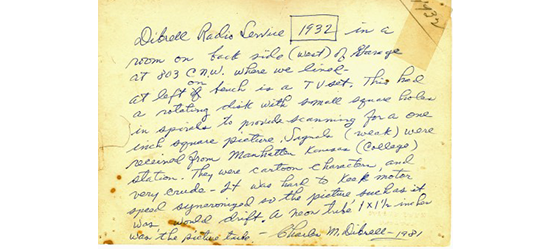 1932
Dibrell Radio Service 1932 in a
room on back side (west) of Garage
at 803 C.N.W. where we lived
at left of on bench is a TV set. This had
a rotating disk with small square holes
in spirals to provide scanning for a one
inch square picture. Signals (weak) were
received from Manhatten Kansas (College)
station. They were cartoon characters and
very crude - It was hard to keek motor
speed syncronized so the picture such as it
was would drift. A neon tube 1x1½ inches
was the picture tube - Charles M. Dibrell - 1981